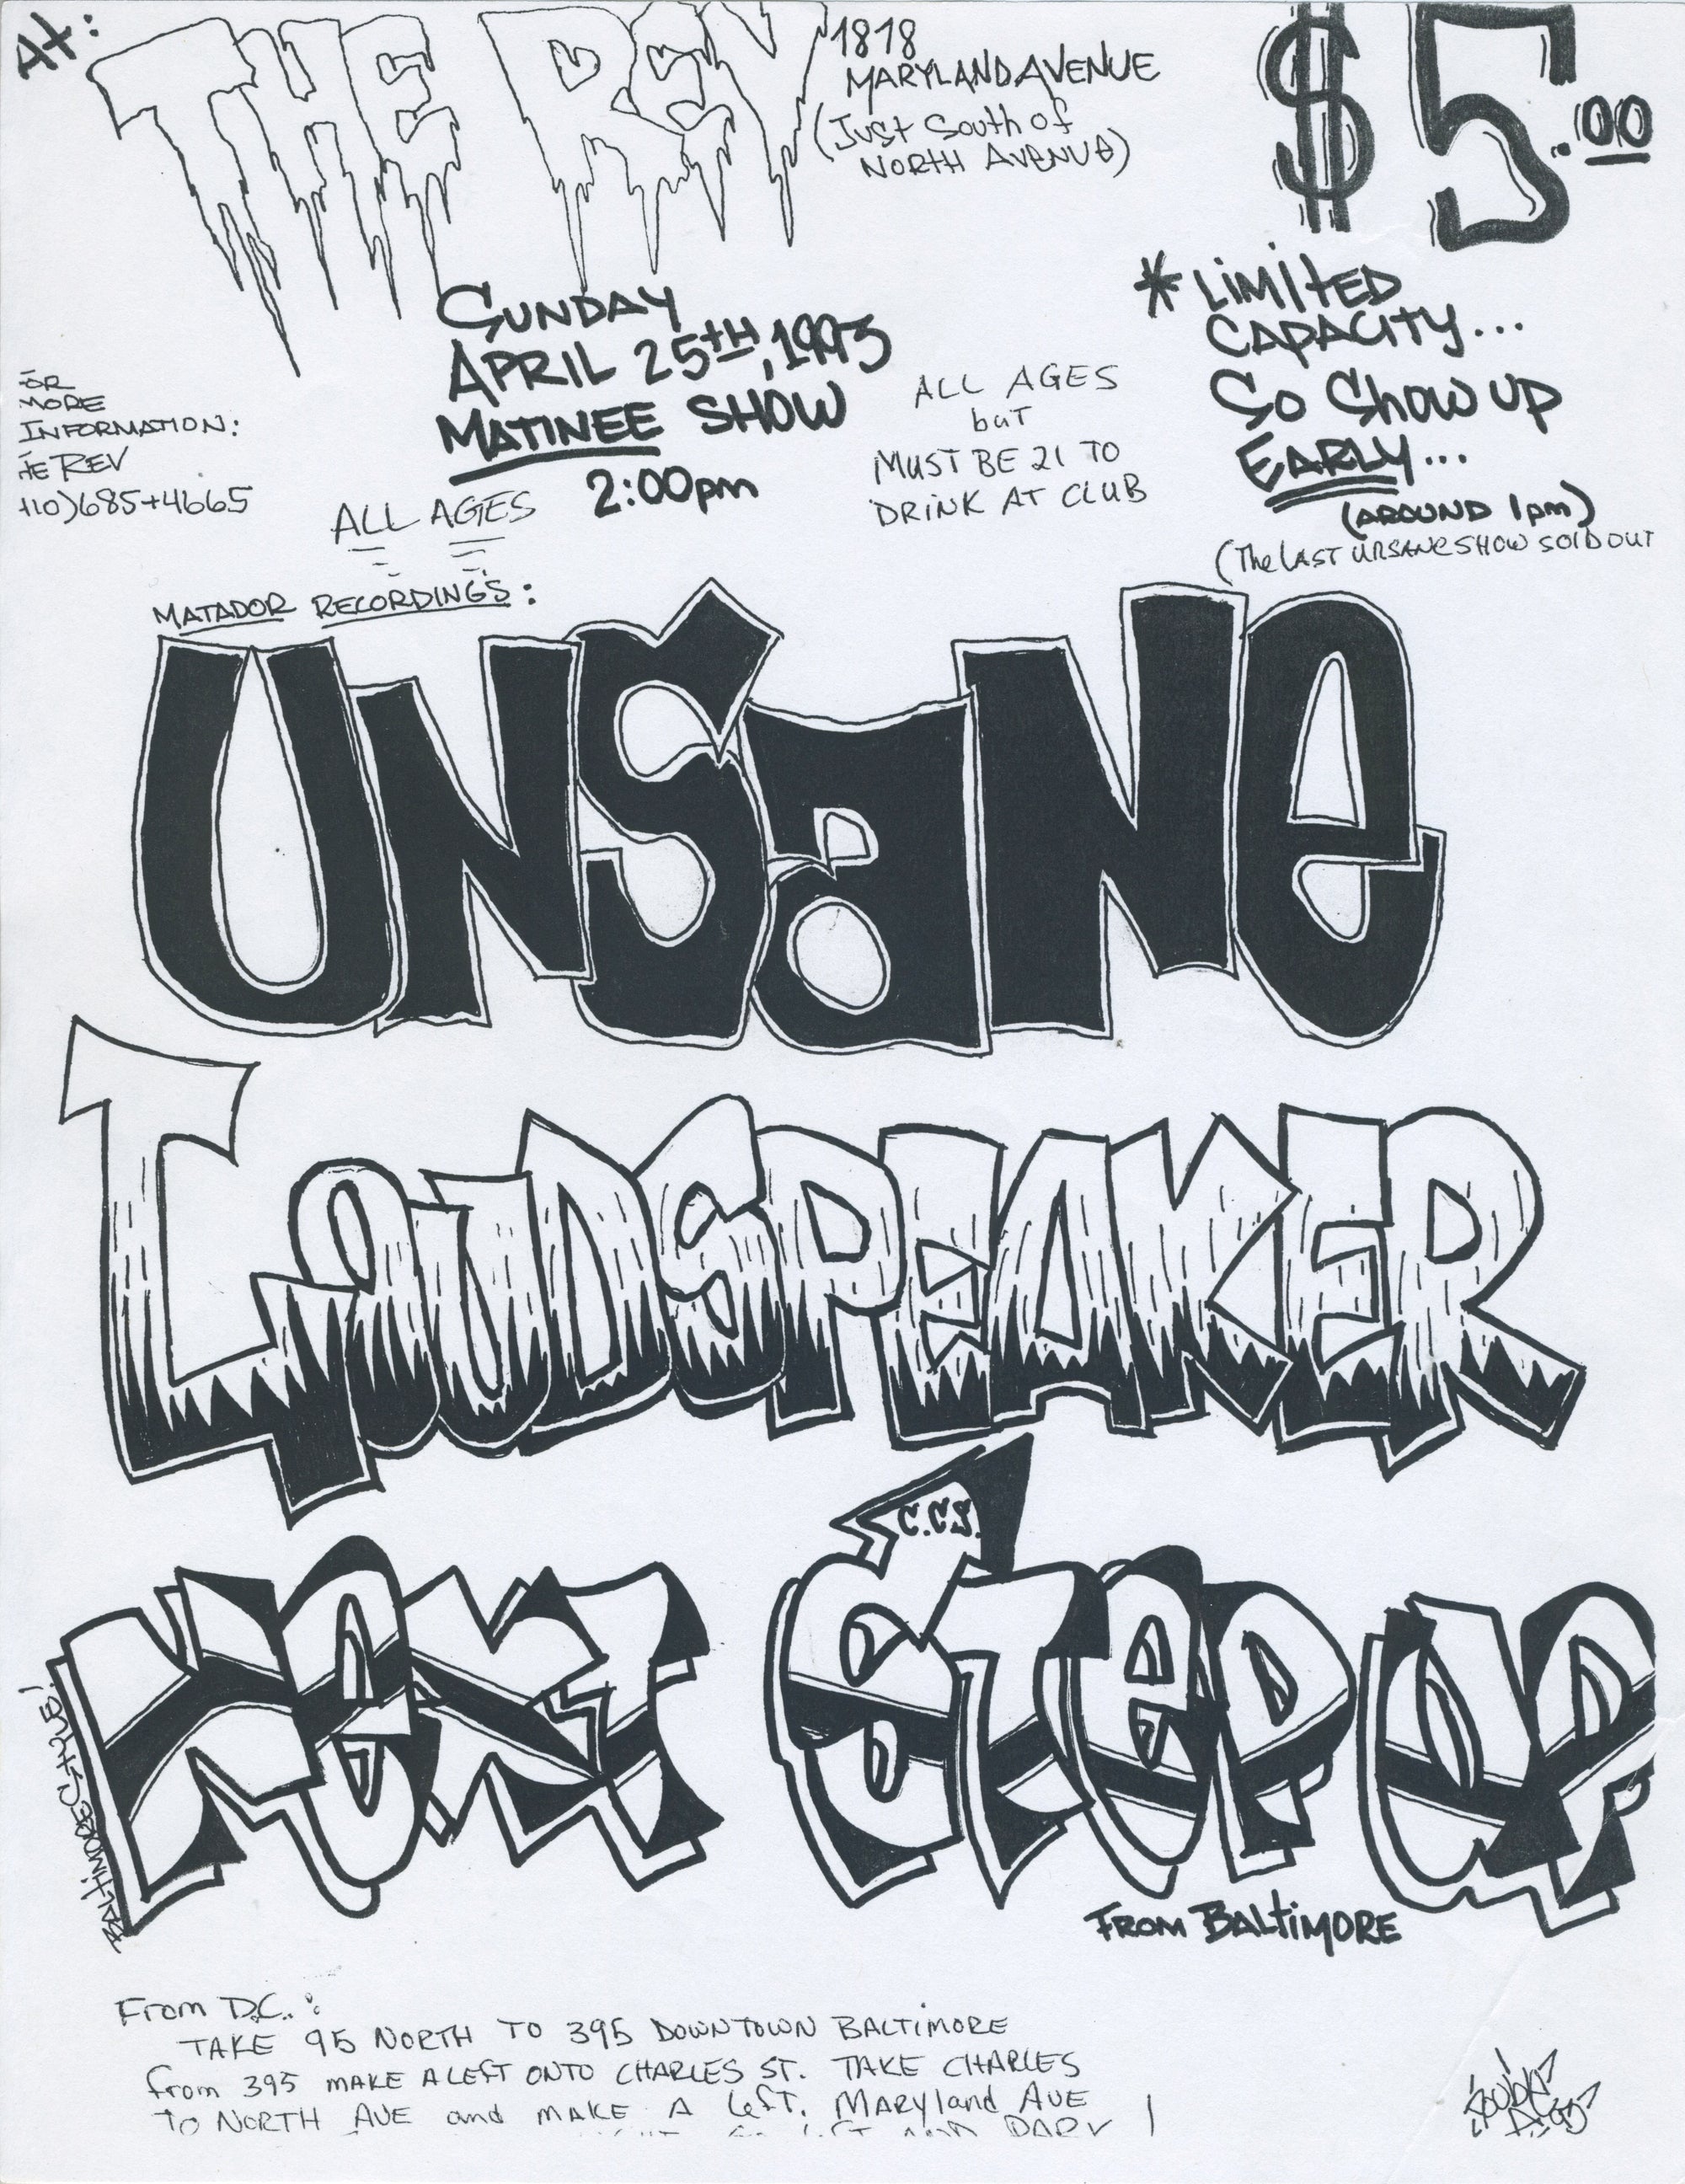 At:
THE REV
1818
MARYLAND AVENUE
(Just South of
NORTH AVENUE)
$5.00
SUNDAY
APRIL 25TH, 1993
MATINEE SHOW
2:00pm
ALL AGES
but
MUST BE 21 TO
DRINK AT CLUB
* LIMITED
CAPACITY...
So Show UP
EARLY...
(AROUND 1pm)
(The LAST UNSANE SHOW SOLD OUT
OR
MORE
INFORMATION:
HE REV
410)685+4665
ALL AGES
MATADOR RECORDINGS:
UNSaNe
LOUDSPEAKER
C.C.S.
NeXT STeP UP
BALTIMORE STYLE!
FROM BALTIMORE
From D.C.:
TAKE 95 NORTH TO 395 DOWNTOWN BALTIMORE
from 395 MAKE A LEFT ONTO CHARLES ST. TAKE CHARLES
TO NORTH AVE and MAKE A left. MARYland AVE
LEFT AND PARK